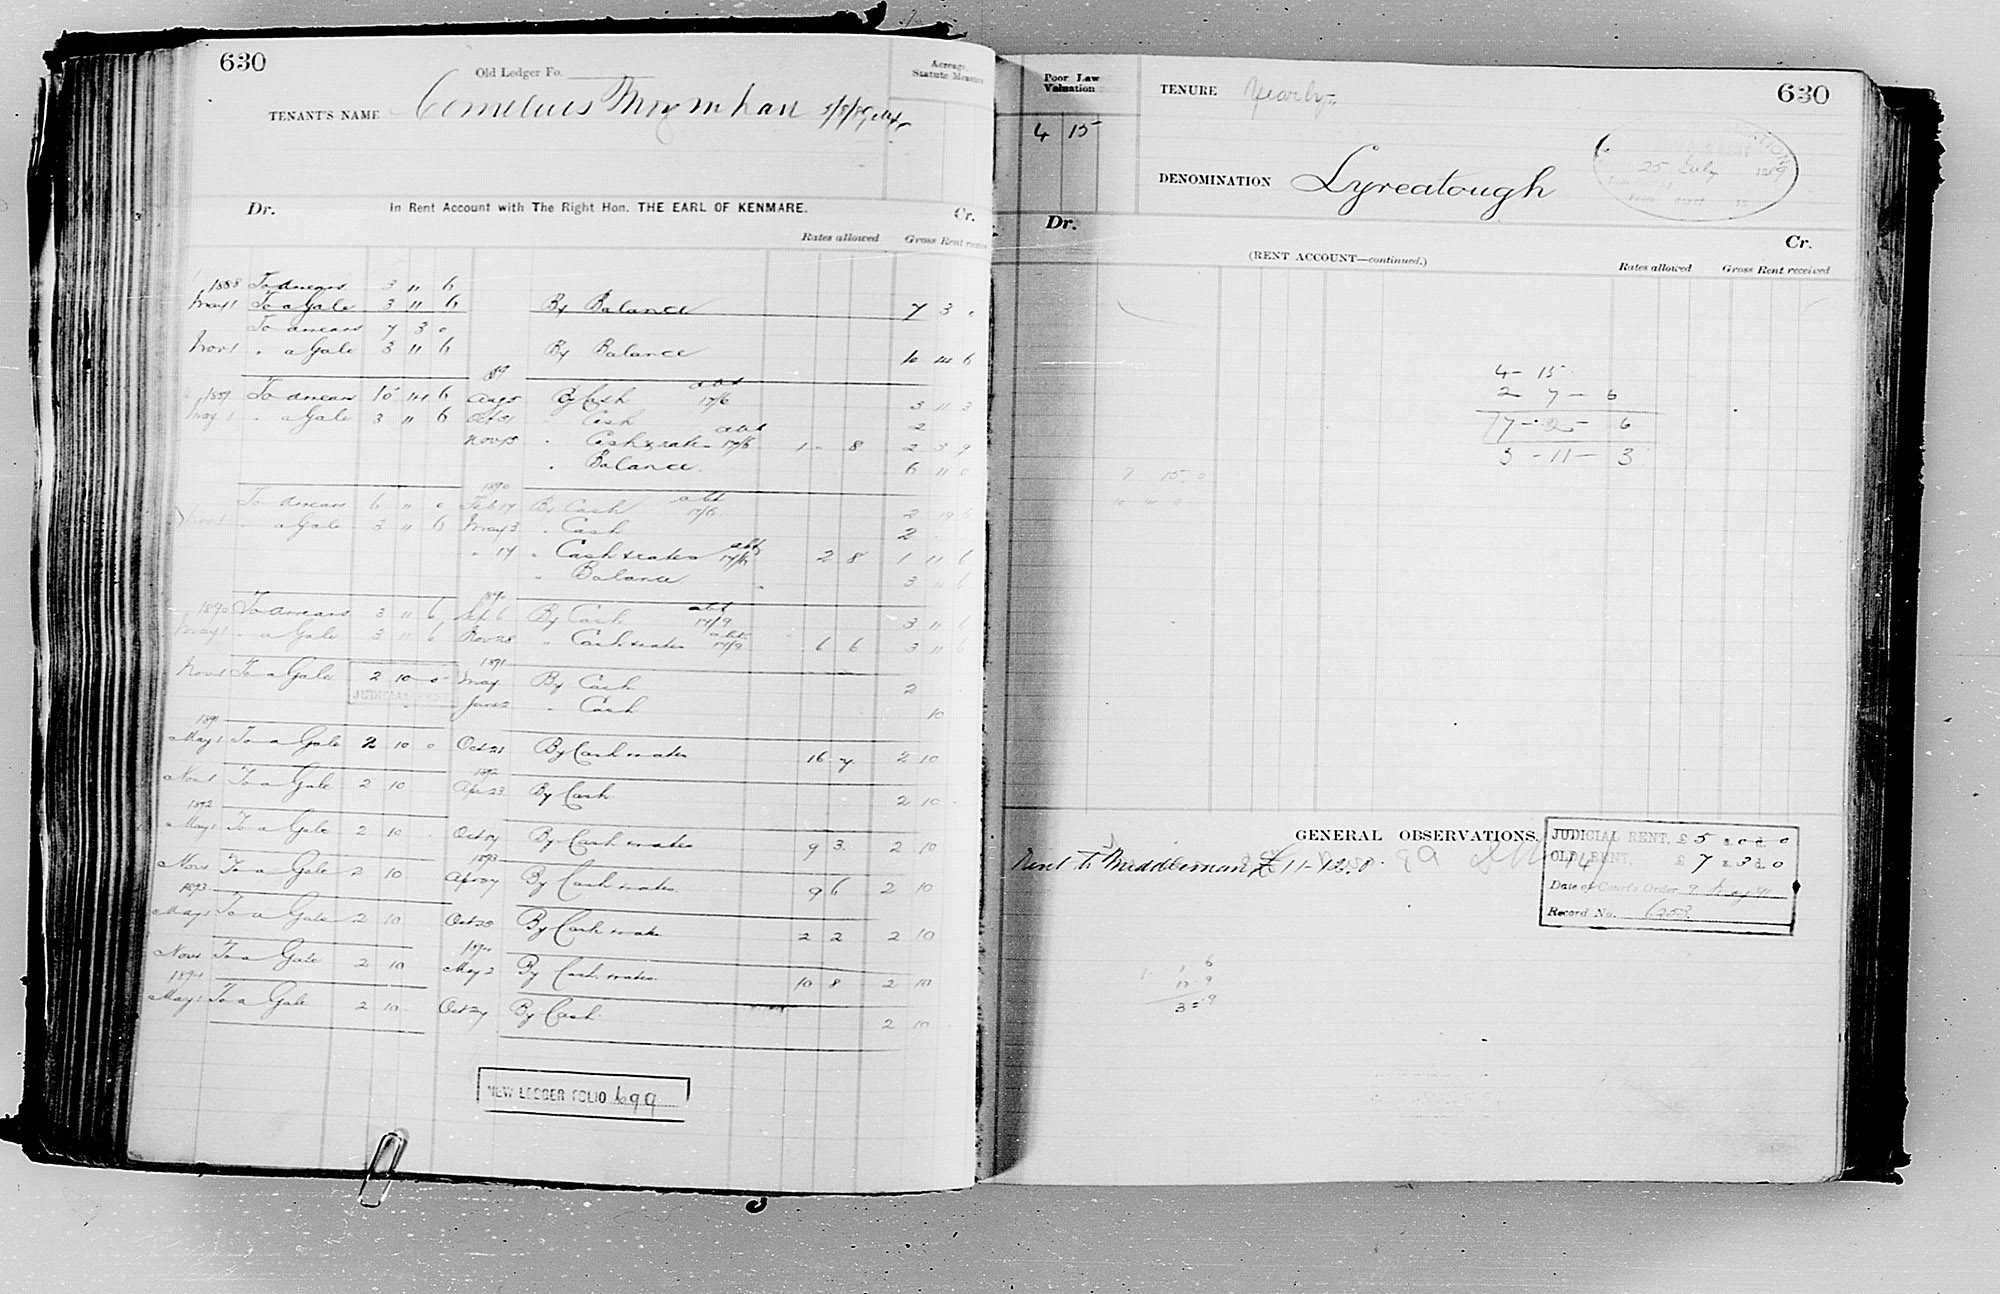 630
Old Ledger Fo.
Acreage
Statute Measure
TENANT'S NAME Cornelius Moynihan
Dr. In Rent Account with The Right Hon. THE EARL OF KENMARE. Cr.
Rates allowed Gross Rent
1888 To arrears 3 11 6
May 1 To a Gale 3 11 6 By Balance 7 3 0
To arrears 7 3 0
Nov 1 " a Gale 3 11 6 By Balance 10 14 6
89
1889 To arrears 10 14 6 Aug 5 By Cash abt 17/6 3 11 3
May 1 " a Gale 3 11 6 Oct 31 " Cash 2
Nov 15 " Cash & rates abt 17/6 1 - 8 2 3 9
" Balance 6 11 0
1890
To arrears 6 11 0 Feb 17 By Cash abt 17/6 2 19 6
Nov 1 " a Gale 3 11 6 May 3 " Cash 2
" 17 " Cash & rates abt 2 8 1 11 6
" Balance 3 11 6
1890
1890 To arrears 3 11 6 Sep 6 By Cash abt 17/9 3 11 6
May 1 " a Gale 3 11 6 Nov 28 " Cash & rates abt 17/9 6 6 3 11 6
1891
Nov 1 To a Gale 2 10 0 May By Cash 2
JUDICIAL RENT
June 2 " Cash 10
1891
May 1 To a Gale 2 10 0 Oct 21 By Cash & rates 16 7 2 10
1892
Nov 1 To a Gale 2 10 Apr 23 By Cash 2 10
1892
May 1 To a Gale 2 10 Oct 17 By Cash & rates 9 3 2 10
1893
Nov 1 To a Gale 2 10 Apr 27 By Cash & rates 9 6 2 10
1893
May 1 To a Gale 2 10 Oct 20 By Cash & rates 2 2 2 10
1894
Nov 1 To a Gale 2 10 May 2 By Cash & rates 10 8 2 10
1894
May 1 To a Gale 2 10 Oct 24 By Cash 2 10
NEW LEDGER FOLIO 699
Poor Law
Valuation
4 15
TENURE Yearly
630
25 July 1889
DENOMINATION Lyreatough
Dr. Cr.
(RENT ACCOUNT—continued.)
Rates allowed Gross Rent received
4 - 15
2 7 - 6
7 - 2 - 6
3 - 11 - 3
7 15 0
GENERAL OBSERVATIONS.
Rent to Middleman £11-
JUDICIAL RENT, £ 5 s 0 d 0
OLD RENT, £ 7 s 3 d 0
Date of Court's Order 9 May 91
Record No. 6253
1 6
17 9
3 = 9